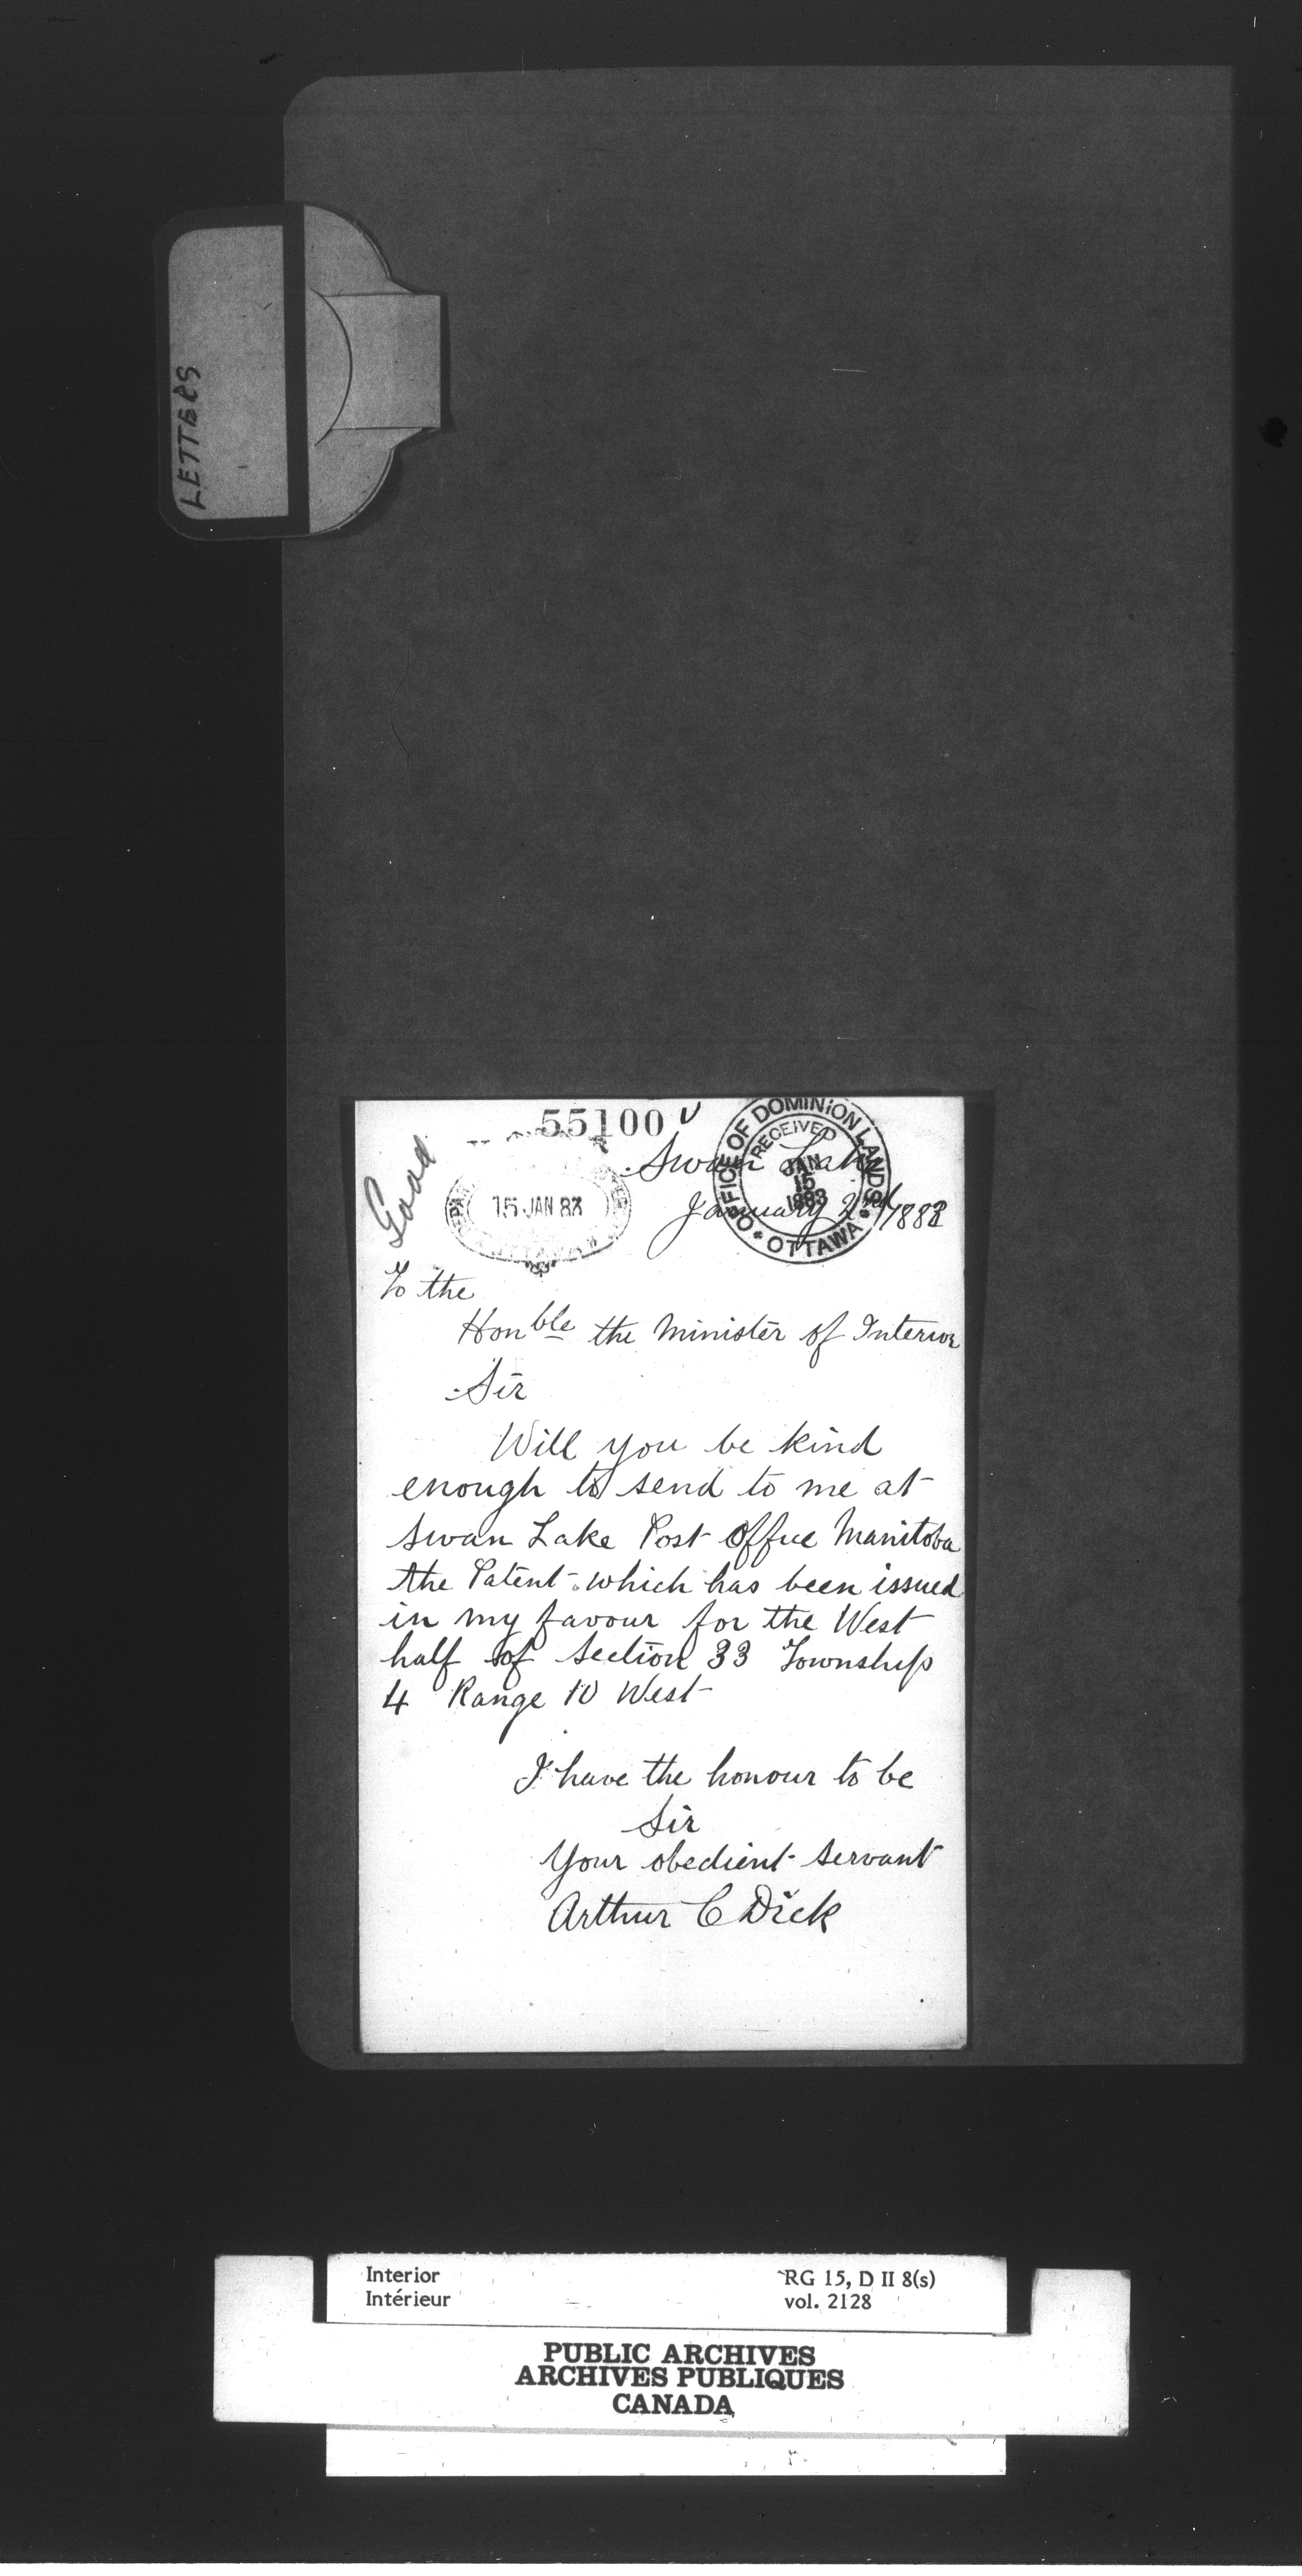 LETTERS
55100
Good
OFFICE OF DOMINION LANDS
RECEIVED
JAN
15
1883
OTTAWA
15 JAN 83
OTTAWA
Swan Lake
January 2nd/1883
To the
Honble the Minister of Interior
Sir
Will you be kind
enough to send to me at
Swan Lake Post Office Manitoba
the Patent which has been issued
in my favour for the West
half of Section 33 Township
4 Range 10 West
I have the honour to be
Sir
Your obedient servant
Arthur C Dick
Interior
Intérieur
RG 15, D II 8(s)
vol. 2128
PUBLIC ARCHIVES
ARCHIVES PUBLIQUES
CANADA